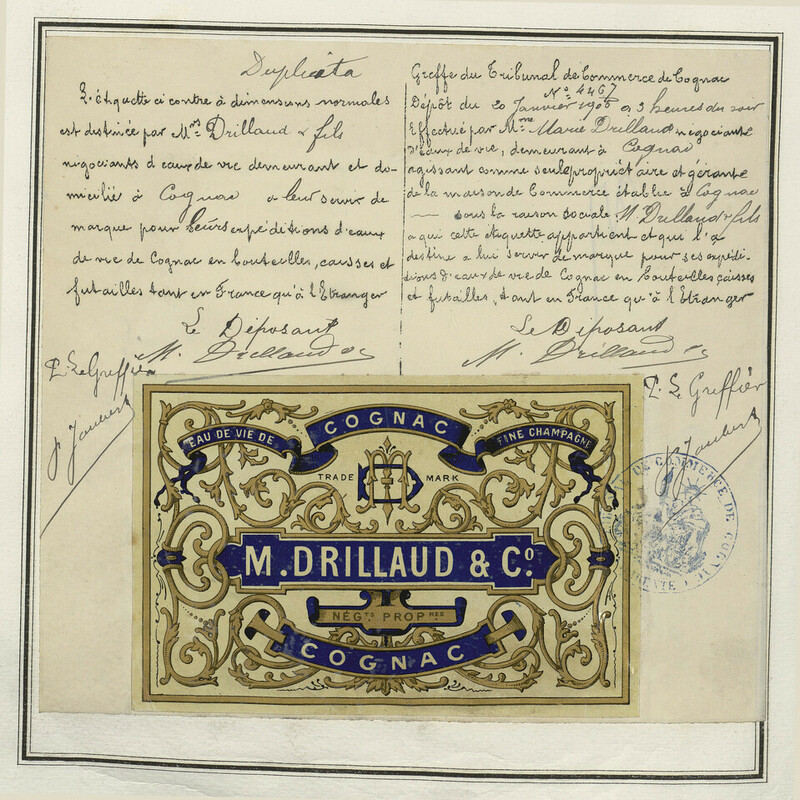 Duplicata
L'étiquette ci contre à dimensions normales
est destinée par Mrs Drillaud & fils
négociants d'eaux de vie demeurant et do-
micilié à Cognac a leur servir de
marque pour leurs expéditions d'eaux
de vie de Cognac en bouteilles, caisses et
futailles tant en France qu'à l'Etranger
Le Déposant
M. Drillaud
P. Le Greffier
Greffe du Tribunal de Commerce de Cognac
No. 4467
Dépôt du 20 Janvier 1906 a 3 heures du soir
Effectué par Mme Marie Drillaud négociante
d'eaux de vie, demeurant à Cognac
agissant comme seule propriétaire et gérante
de la maison de Commerce établie à Cognac
— sous la raison sociale M. Drillaud & fils
a qui cette étiquette appartient et qui l'a
destine a lui servir de marque pour ses expédi-
tions d'eaux de vie de Cognac en bouteilles caisses
et futailles, tant en France qu'à l'Etranger
Le Déposant
M. Drillaud
P. Le Greffier
EAU DE VIE DE COGNAC FINE CHAMPAGNE
TRADE MARK
M. DRILLAUD & Co.
NÉGts PROPres
COGNAC
DE COMMERCE DE COGNAC